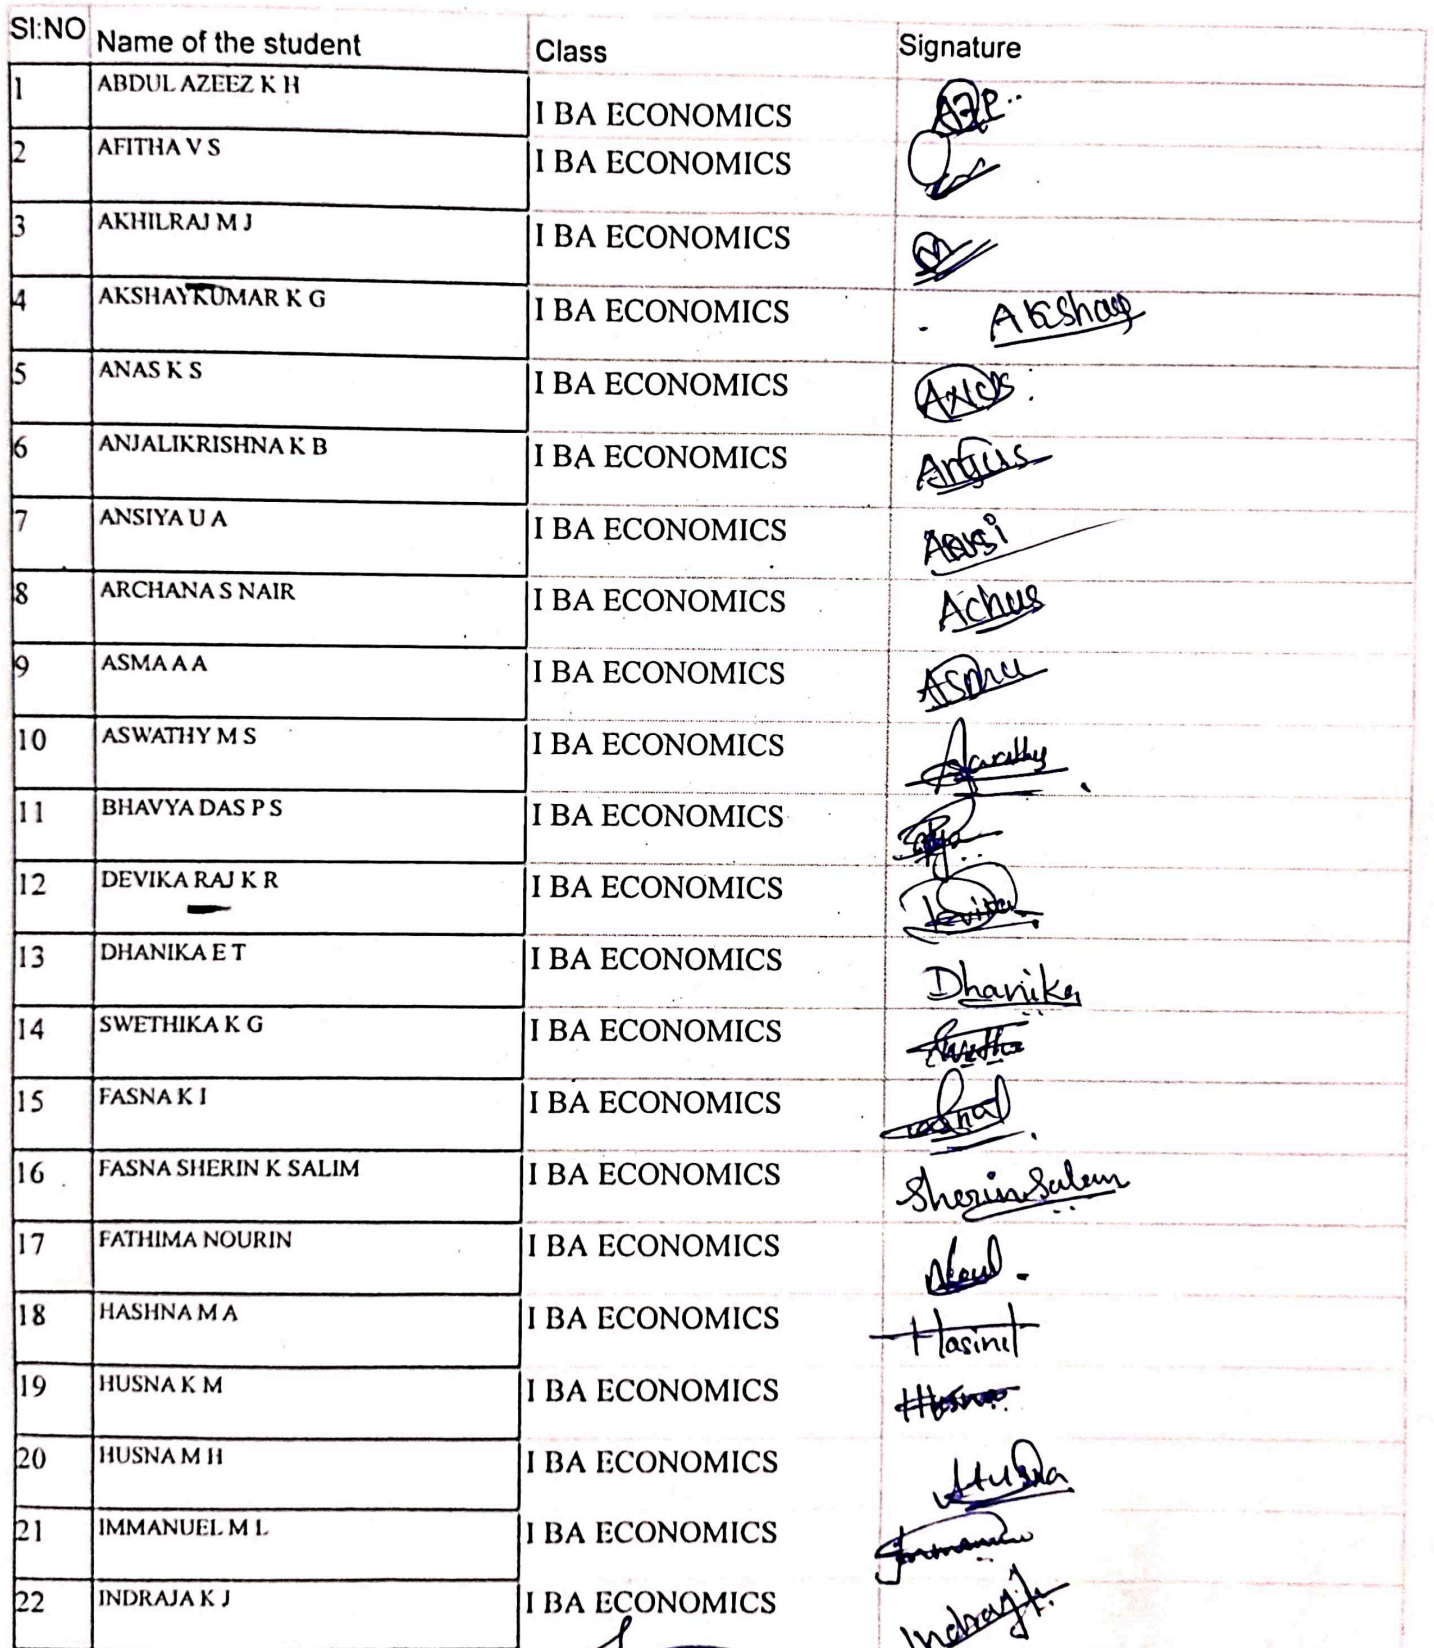 Sl:NO Name of the student Class Signature
1 ABDUL AZEEZ K H I BA ECONOMICS
2 AFITHA V S I BA ECONOMICS
3 AKHILRAJ M J I BA ECONOMICS
4 AKSHAYKUMAR K G I BA ECONOMICS Akshay
5 ANAS K S I BA ECONOMICS
6 ANJALIKRISHNA K B I BA ECONOMICS
7 ANSIYA U A I BA ECONOMICS
8 ARCHANA S NAIR I BA ECONOMICS Achus
9 ASMA A A I BA ECONOMICS
10 ASWATHY M S I BA ECONOMICS
11 BHAVYA DAS P S I BA ECONOMICS
12 DEVIKA RAJ K R I BA ECONOMICS
13 DHANIKA E T I BA ECONOMICS Dhanika
14 SWETHIKA K G I BA ECONOMICS
15 FASNA K I I BA ECONOMICS
16 FASNA SHERIN K SALIM I BA ECONOMICS
17 FATHIMA NOURIN I BA ECONOMICS
18 HASHNA M A I BA ECONOMICS
19 HUSNA K M I BA ECONOMICS Husna
20 HUSNA M H I BA ECONOMICS Husna
21 IMMANUEL M L I BA ECONOMICS
22 INDRAJA K J I BA ECONOMICS